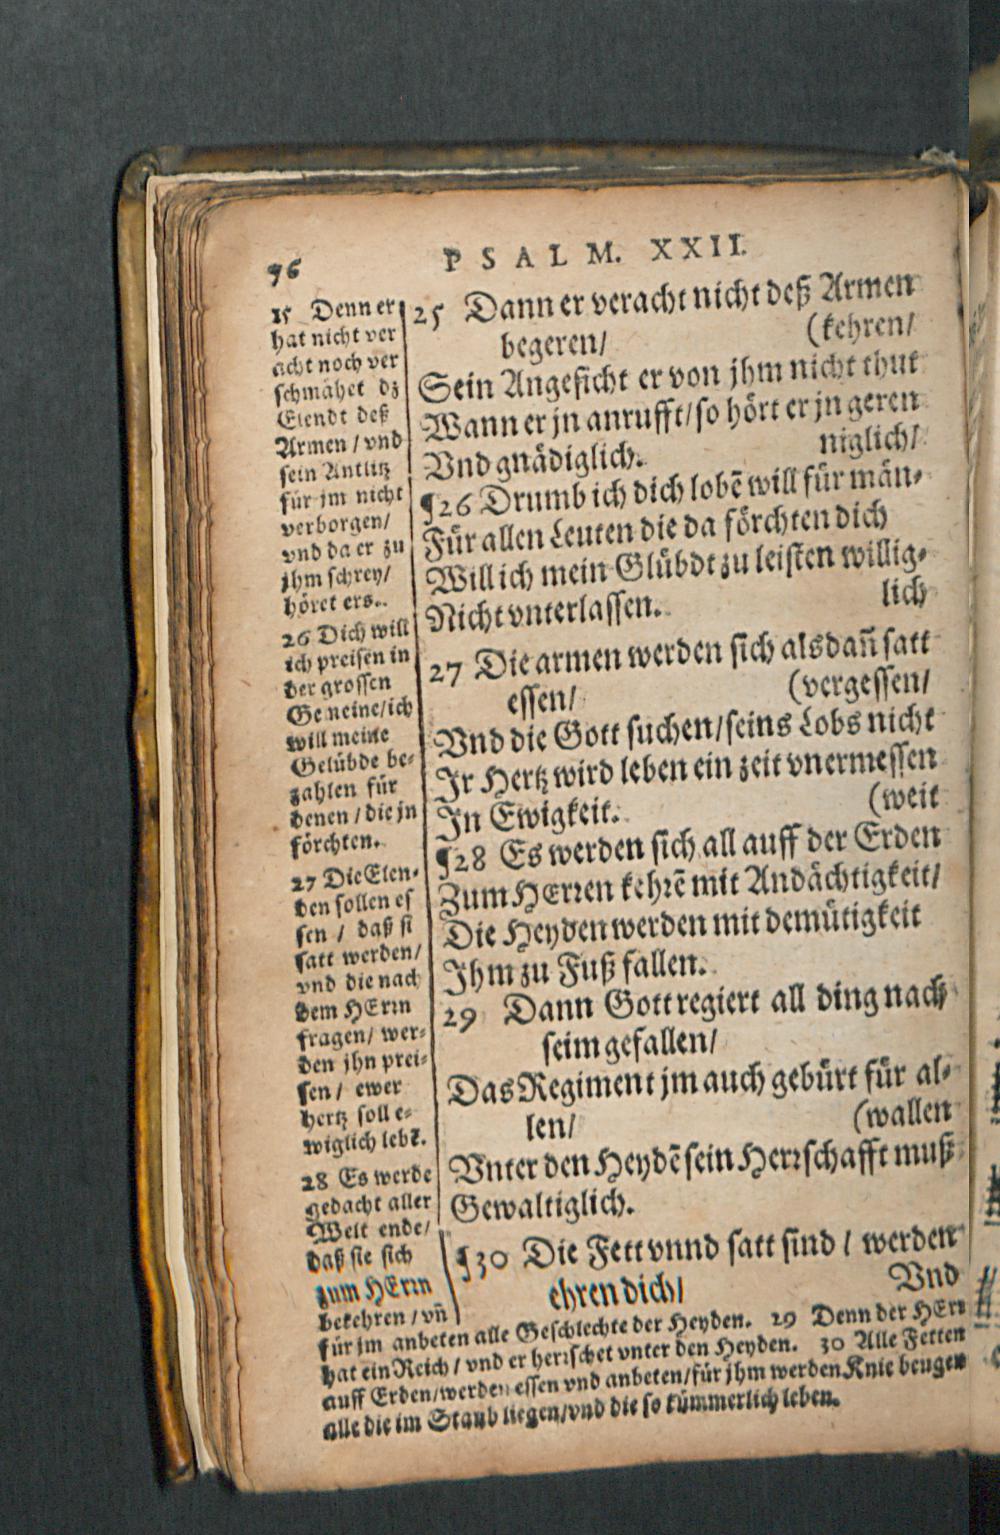 76
PSALM. XXII.
25 Dann er veracht nicht deß Armen
begeren/ (kehren/
Sein Angesicht er von jhm nicht thut
Wann er jn anrufft/so hört er jn geren
Vnd gnädiglich. niglich/
¶26 Drumb ich dich lobē will für män-
Für allen Leuten die da förchten dich
Will ich mein Glübdt zu leisten willig-
Nicht vnterlassen. lich
27 Die armen werden sich alsdañ satt
essen/ (vergessen/
Vnd die Gott suchen/seins Lobs nicht
Jr Hertz wird leben ein zeit vnermessen
Jn Ewigkeit. (weit
¶28 Es werden sich all auff der Erden
Zum HErren kehrē mit Andächtigkeit/
Die Heyden werden mit demütigkeit
Jhm zu Fuß fallen.
29 Dann Gott regiert all ding nach
seim gefallen/
Das Regiment jm auch gebürt für al-
len/ (wallen
Vnter den Heydē sein Herrschafft muß
Gewaltiglich.
¶30 Die Fett vnnd satt sind / werden
ehren dich/ Vnd
15 Denn er
hat nicht ver
acht noch ver
schmähet dz
Elendt deß
Armen / vnd
sein Antlitz
für jm nicht
verborgen/
vnd da er zu
jhm schrey/
höret ers.
26 Dich will
ich preisen in
der grossen
Gemeine/ich
will meine
Gelübde be-
zahlen für
denen / die jn
förchten.
27 Die Elen-
den sollen es
sen / daß si
satt werden/
vnd die nach
dem HErrn
fragen/ wer-
den jhn prei-
sen / ewer
hertz soll e-
wiglich lebē.
28 Es werde
gedacht aller
Welt ende/
daß sie sich
zum HErrn
bekehren / vñ
für jm anbeten alle Geschlechte der Heyden. 29 Denn der HErr
hat ein Reich / vnd er herrschet vnter den Heyden. 30 Alle Fetten
auff Erden/werden essen vnd anbeten/für jhm werden Knie beugen
alle die im Staub liegen/vnd die so kümmerlich leben.